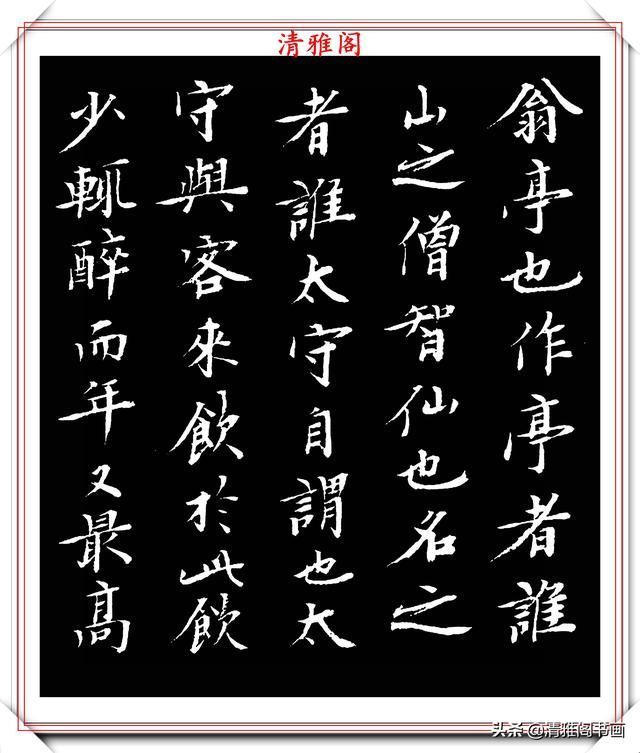 清雅阁
翁亭也作亭者誰
山之僧智仙也名之
者誰太守自謂也太
守與客來飲於此飲
少輒醉而年又最高
头条@清雅阁书画